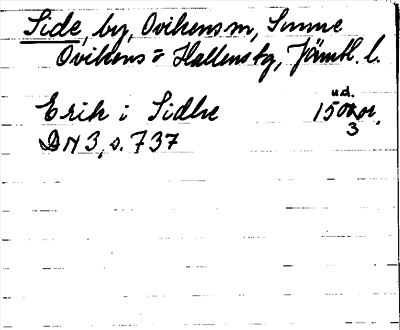 Side, by, Ovikens sn, Sunne
Ovikens o Hallens tg, Jämtl. l.
u.d.
Erik i Sidhe 1500
3
DN 3, s. 737